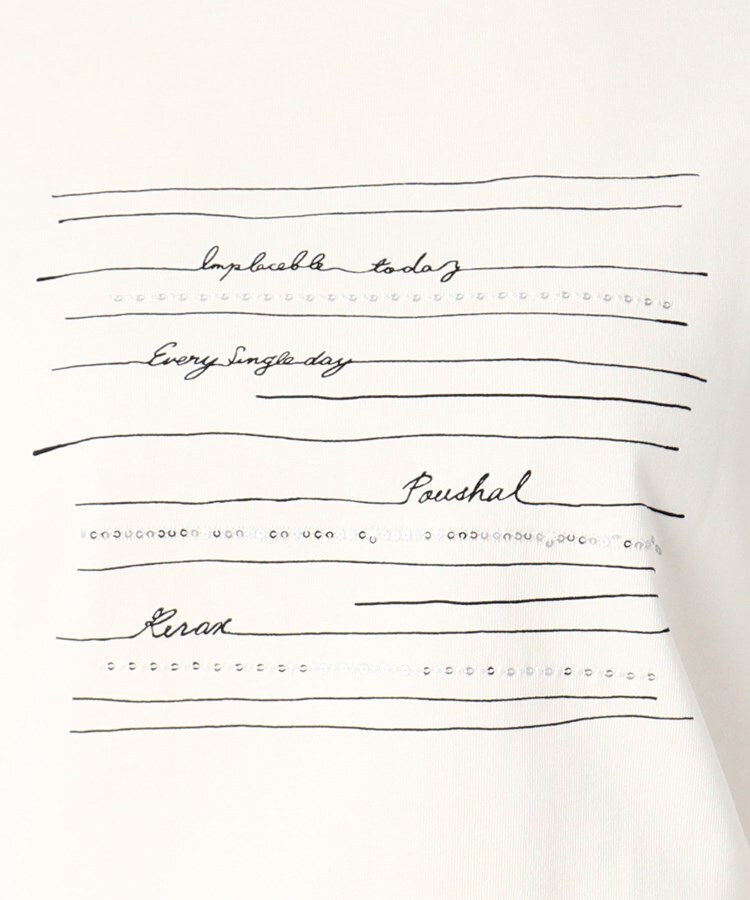 Implaceble today
Every Single day
Poushal
Rerax